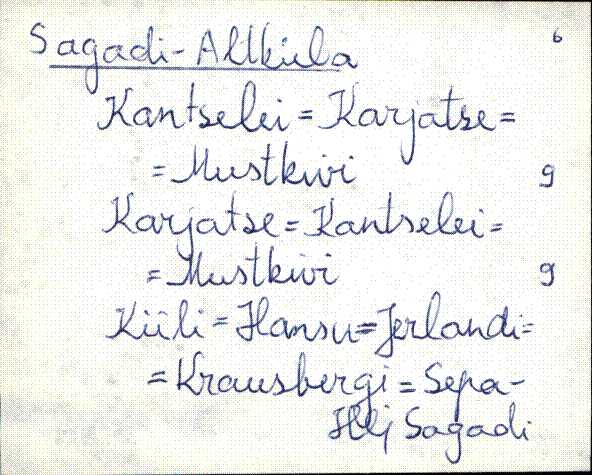 Sagadi-Altküla 6
Kantselei = Karjatse =
= Mustkivi 9
Karjatse = Kantselei =
= Mustkivi 9
Küli = Hansu = Jerlandi =
= Krausbergi = Sepa-
Hlj Sagadi